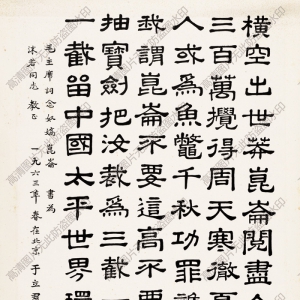 橫空出世莽崑崙閱盡
三百萬攪得周天寒徹
人或爲魚鱉千秋功罪
我謂崑崙不要這高不要
抽寶劍把汝裁爲三截一
一截畱中國太平世界環
毛主席詞念奴嬌崑崙 書爲
沫若同志 教正 一九六三年 春在北京 于立